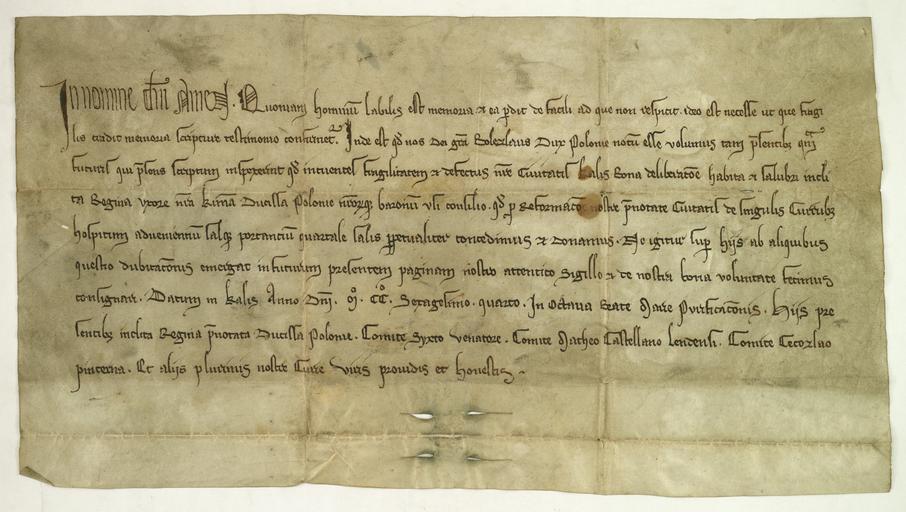 In nomine dni Amen. Quoniam hominu labilis est memoria et ea pdit de facili ad que non respicit. ideo est necesse ut que fragi
lis tradit memoria scripture testimonio confirmet. Inde est qd nos Dei gra Bolezlaus Dux Polonie notu esse volumus tam psentibz qm
futuris qui psens scriptum inspexerint qd intuentes fragilitatem et defectus nre Civitatis Kalis Bona deliberatoe habita et salubri incli
ta Regina uxore nra Ducissa Polonie baronum consilio. qd p Reformatoe nostre pnotate Civitatis de singulis Curribz
hospitum advenientiu salqz portanciu quartale salis ppetualiter concedimus et donamus. Ne igitur sup hijs ab aliquibus
questio dubitatonis emergat in futurum presentem paginam nostro attentico Sigillo et de nostra bona voluntate fecimus
consignari. Datum in Kalis Anno Dni. M. CC. Sexagesimo. quarto. In Octava Marie Purificatonis. Hijs pre
sentibz inclita Regina pnotata Ducissa Polonie. Comite Syxto venatore. Comite Matheo Castellano Lendensi. Comite Cecozlao
pincerna. Et alijs plurimis nostre Curie viris providis et honestis.